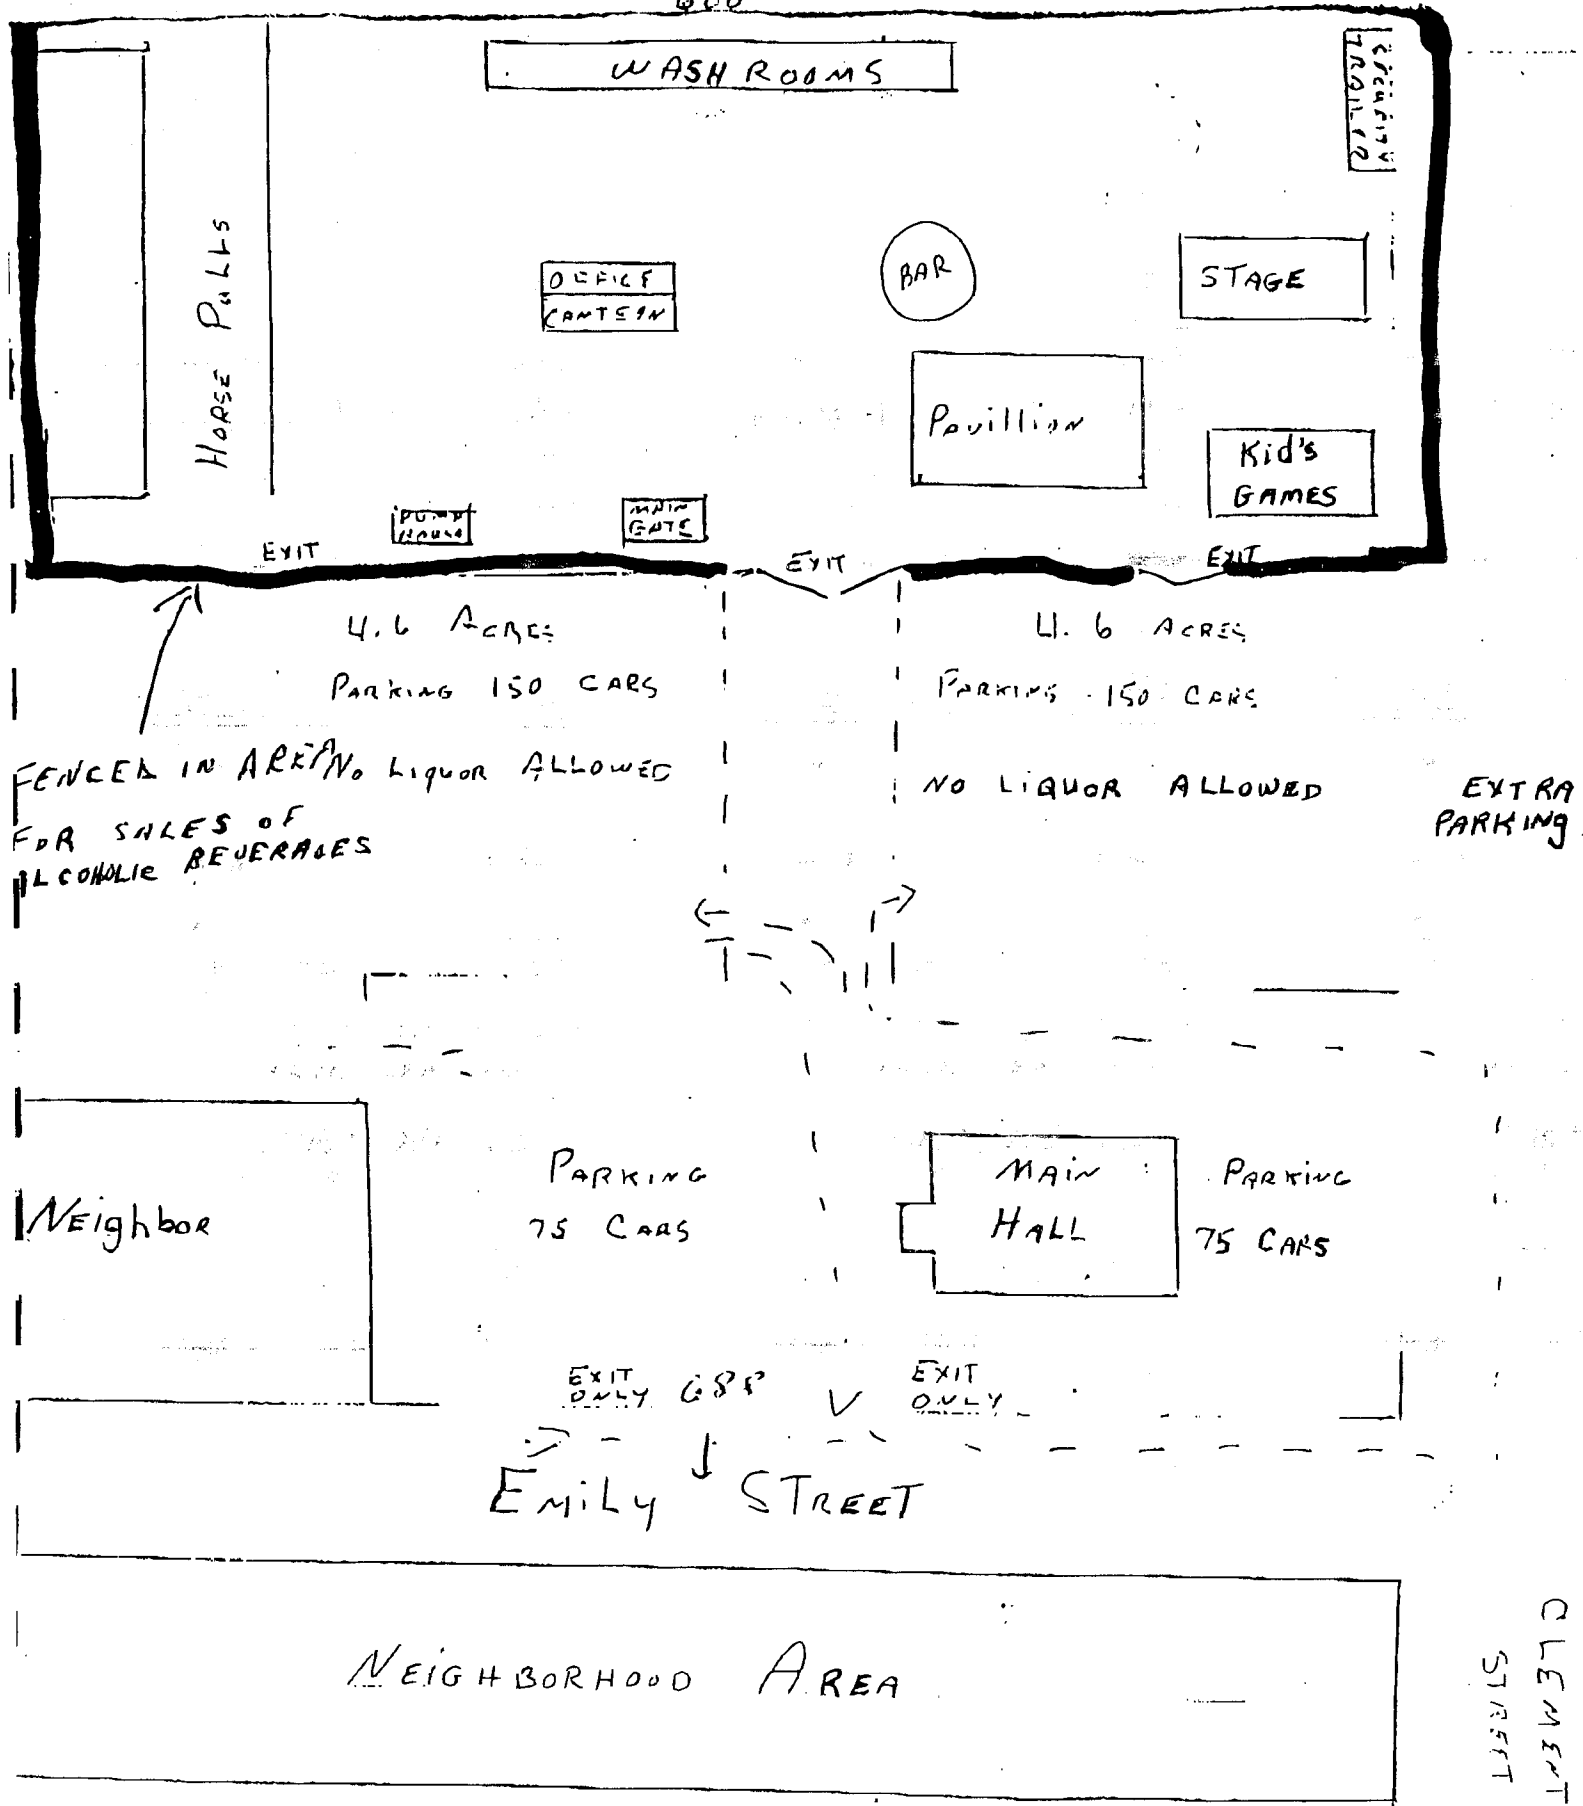 WASH ROOMS
SECURITY
TRAILER
HORSE PULLS
OFFICE
CANTEEN
BAR
STAGE
Pavillion
Kid's
GAMES
PUMP
HOUSE
MAIN
GATE
EXIT
EXIT
EXIT
4.6 ACRES
PARKING 150 CARS
4.6 ACRES
PARKING 150 CARS
FENCED IN AREA
FOR SALES OF
ALCOHOLIC BEVERAGES
NO LIQUOR ALLOWED
NO LIQUOR ALLOWED
EXTRA
PARKING
Neighbor
PARKING
75 CARS
MAIN
HALL
PARKING
75 CARS
EXIT
ONLY
EXIT
ONLY
EMILY STREET
NEIGHBORHOOD AREA
CLEMENT
STREET